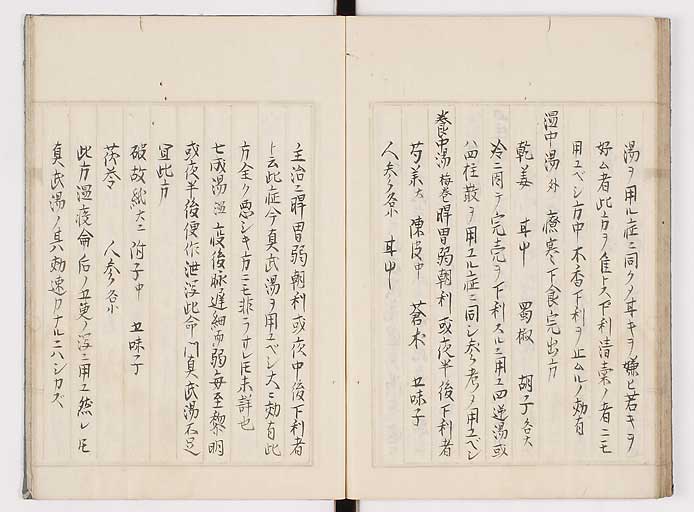 湯ヲ用ル症ニ同クノ耳キヲ嫌ヒ苦キヲ
好ム者此方ヲ隹トス下利清棗ノ者ニモ
用ユベシ方中木香下利ヲ止ムルノ効有
温中湯 外 療寒下食完出方
乾姜 耳中 蜀椒 胡子各大
冷ニ因テ完壳ヲ下利スルニ用ユ四逆湯或
ハ四柱散ヲ用ユル症ニ同シ参考ノ用ユベシ
養中湯 梅巻 脾胃弱朝利或夜半後下利者
芍薬大 陳皮中 蒼朮 五味子
人参各小 耳中
主治ニ脾胃弱朝利或夜中後下利者
ト云此症今真武湯ヲ用ユベシ大ニ効有此
方全ク悪シキ方ニモ非ラサレ𪜈未詳也
七成湯 温 疫後脉遅細而弱毎至黎明
或夜半後便作泄泻此命門真武湯不足
宜此方
破故紙大ニ 附子中 五味子
茯苓 人参各小
此方温疫侖后ノ五更ノ泻ニ用ユ然レ𪜈
真武湯ノ其効速カナルニハシカズ